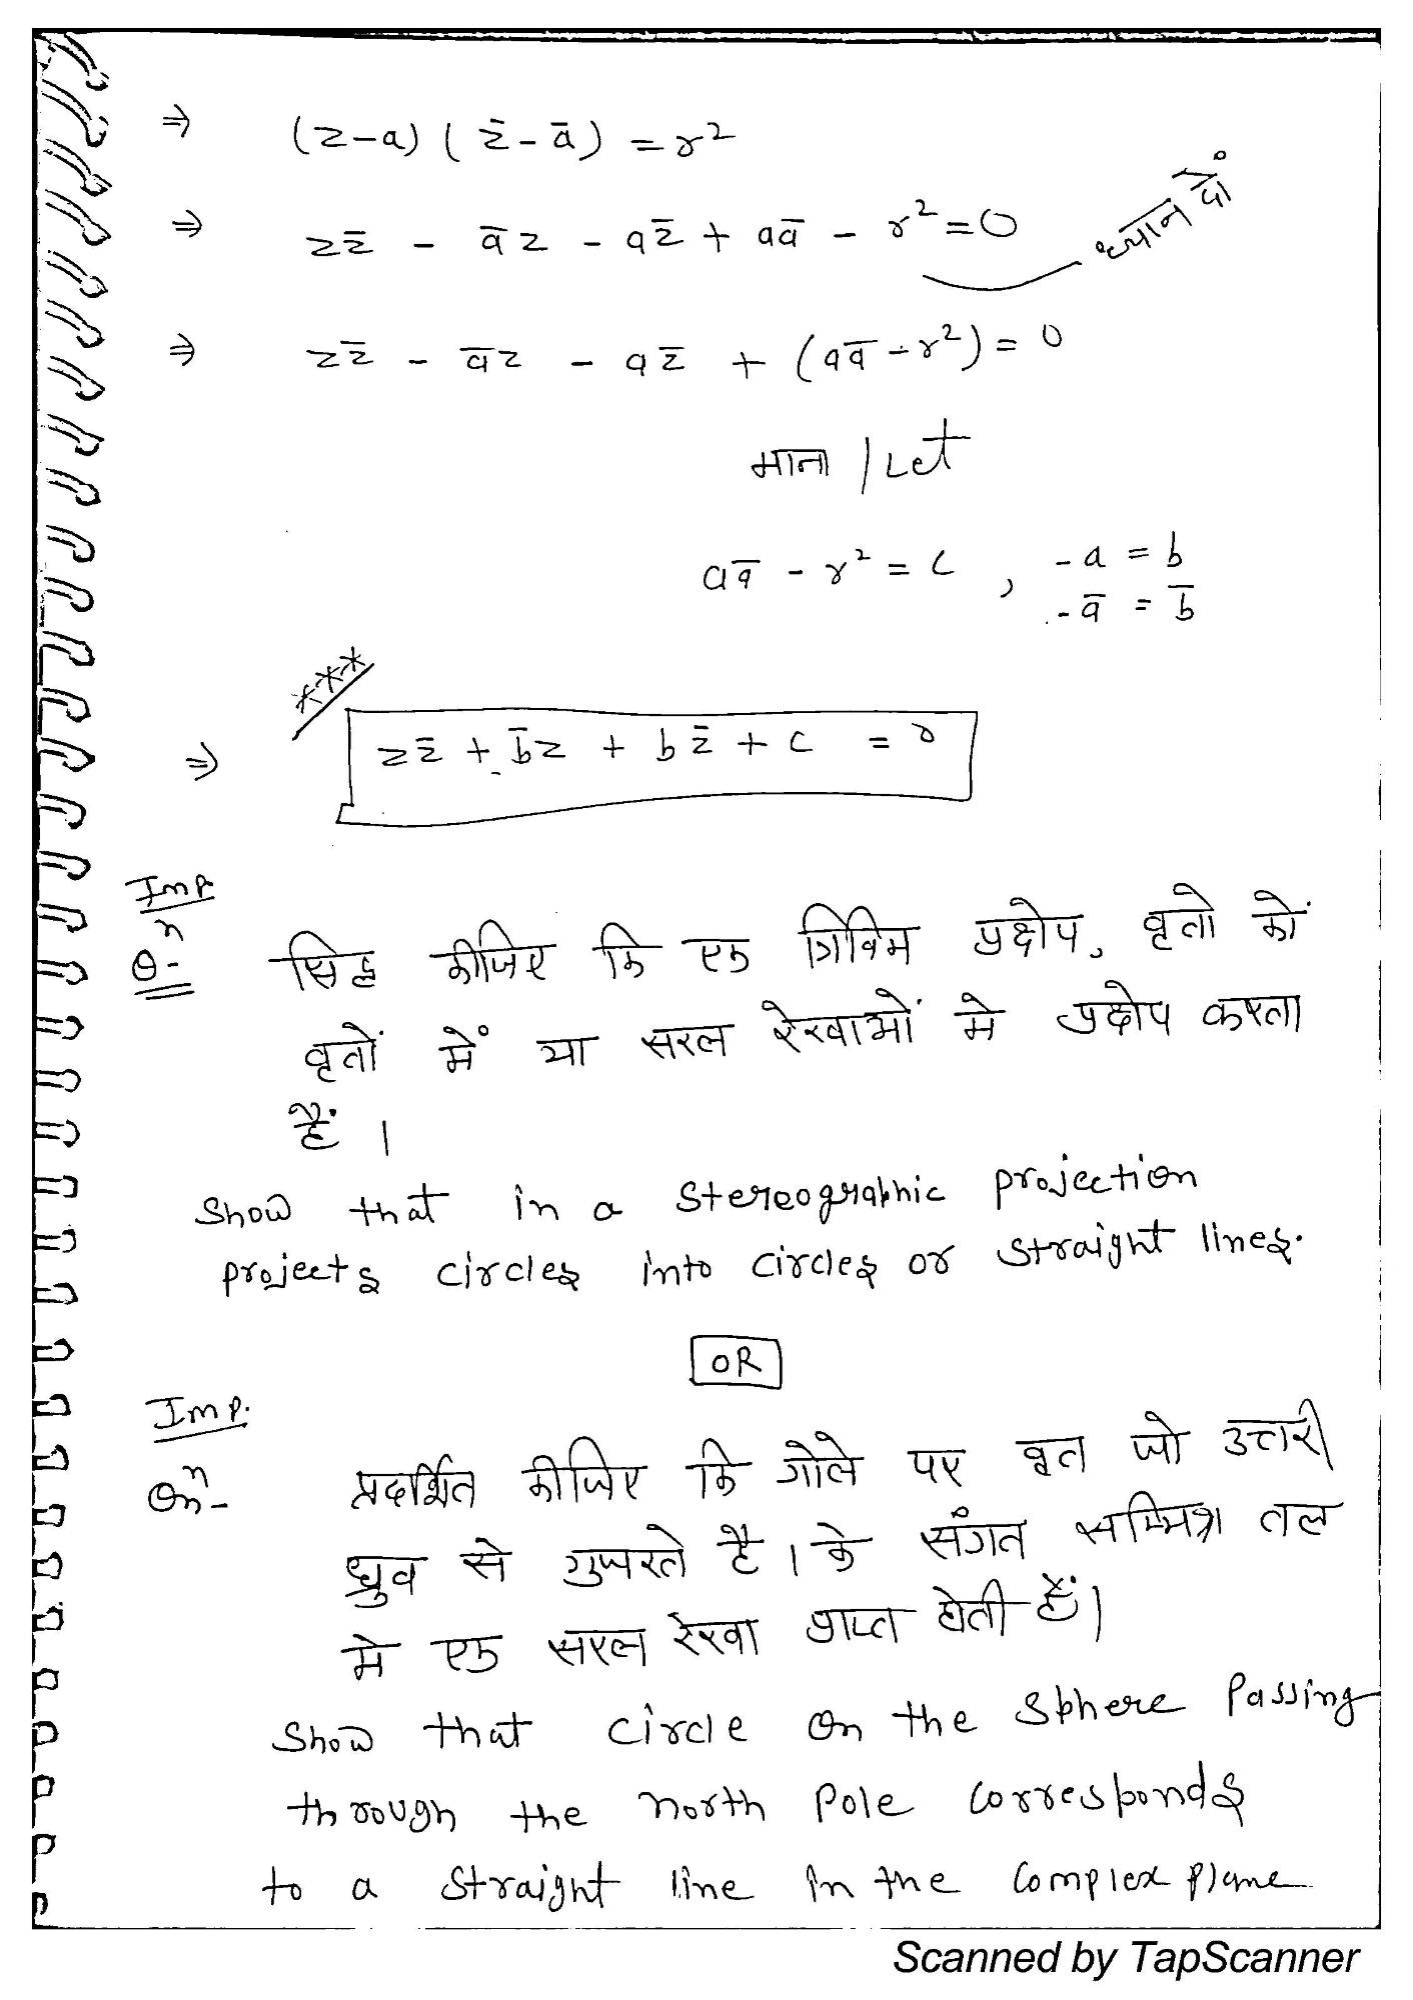 ⇒ (z-a) ( z̄ - ā) = r²
⇒ zz̄ - āz - az̄ + aā - r² = 0
ध्यान दें
⇒ zz̄ - āz - az̄ + (aā - r²) = 0
माना / Let
aā - r² = c , -a = b
-ā = b̄
***
⇒ zz̄ + b̄z + bz̄ + c = 0
Imp.
Qⁿ- सिद्ध कीजिए कि एक त्रिविम प्रक्षेप, वृतो को
वृतों में या सरल रेखाओं मे प्रक्षेप करता
हैं ।
Show that in a stereographic projection
projects circles into circles or straight lines.
OR
Imp.
Qnⁿ- प्रदर्शित कीजिए कि गोले पर वृत जो उत्तरी
ध्रुव से गुजरते है । के संगत सम्मिश्र तल
मे एक सरल रेखा प्राप्त होती हैं।
Show that circle on the sphere passing
through the north pole corresponds
to a straight line in the complex plane
Scanned by TapScanner